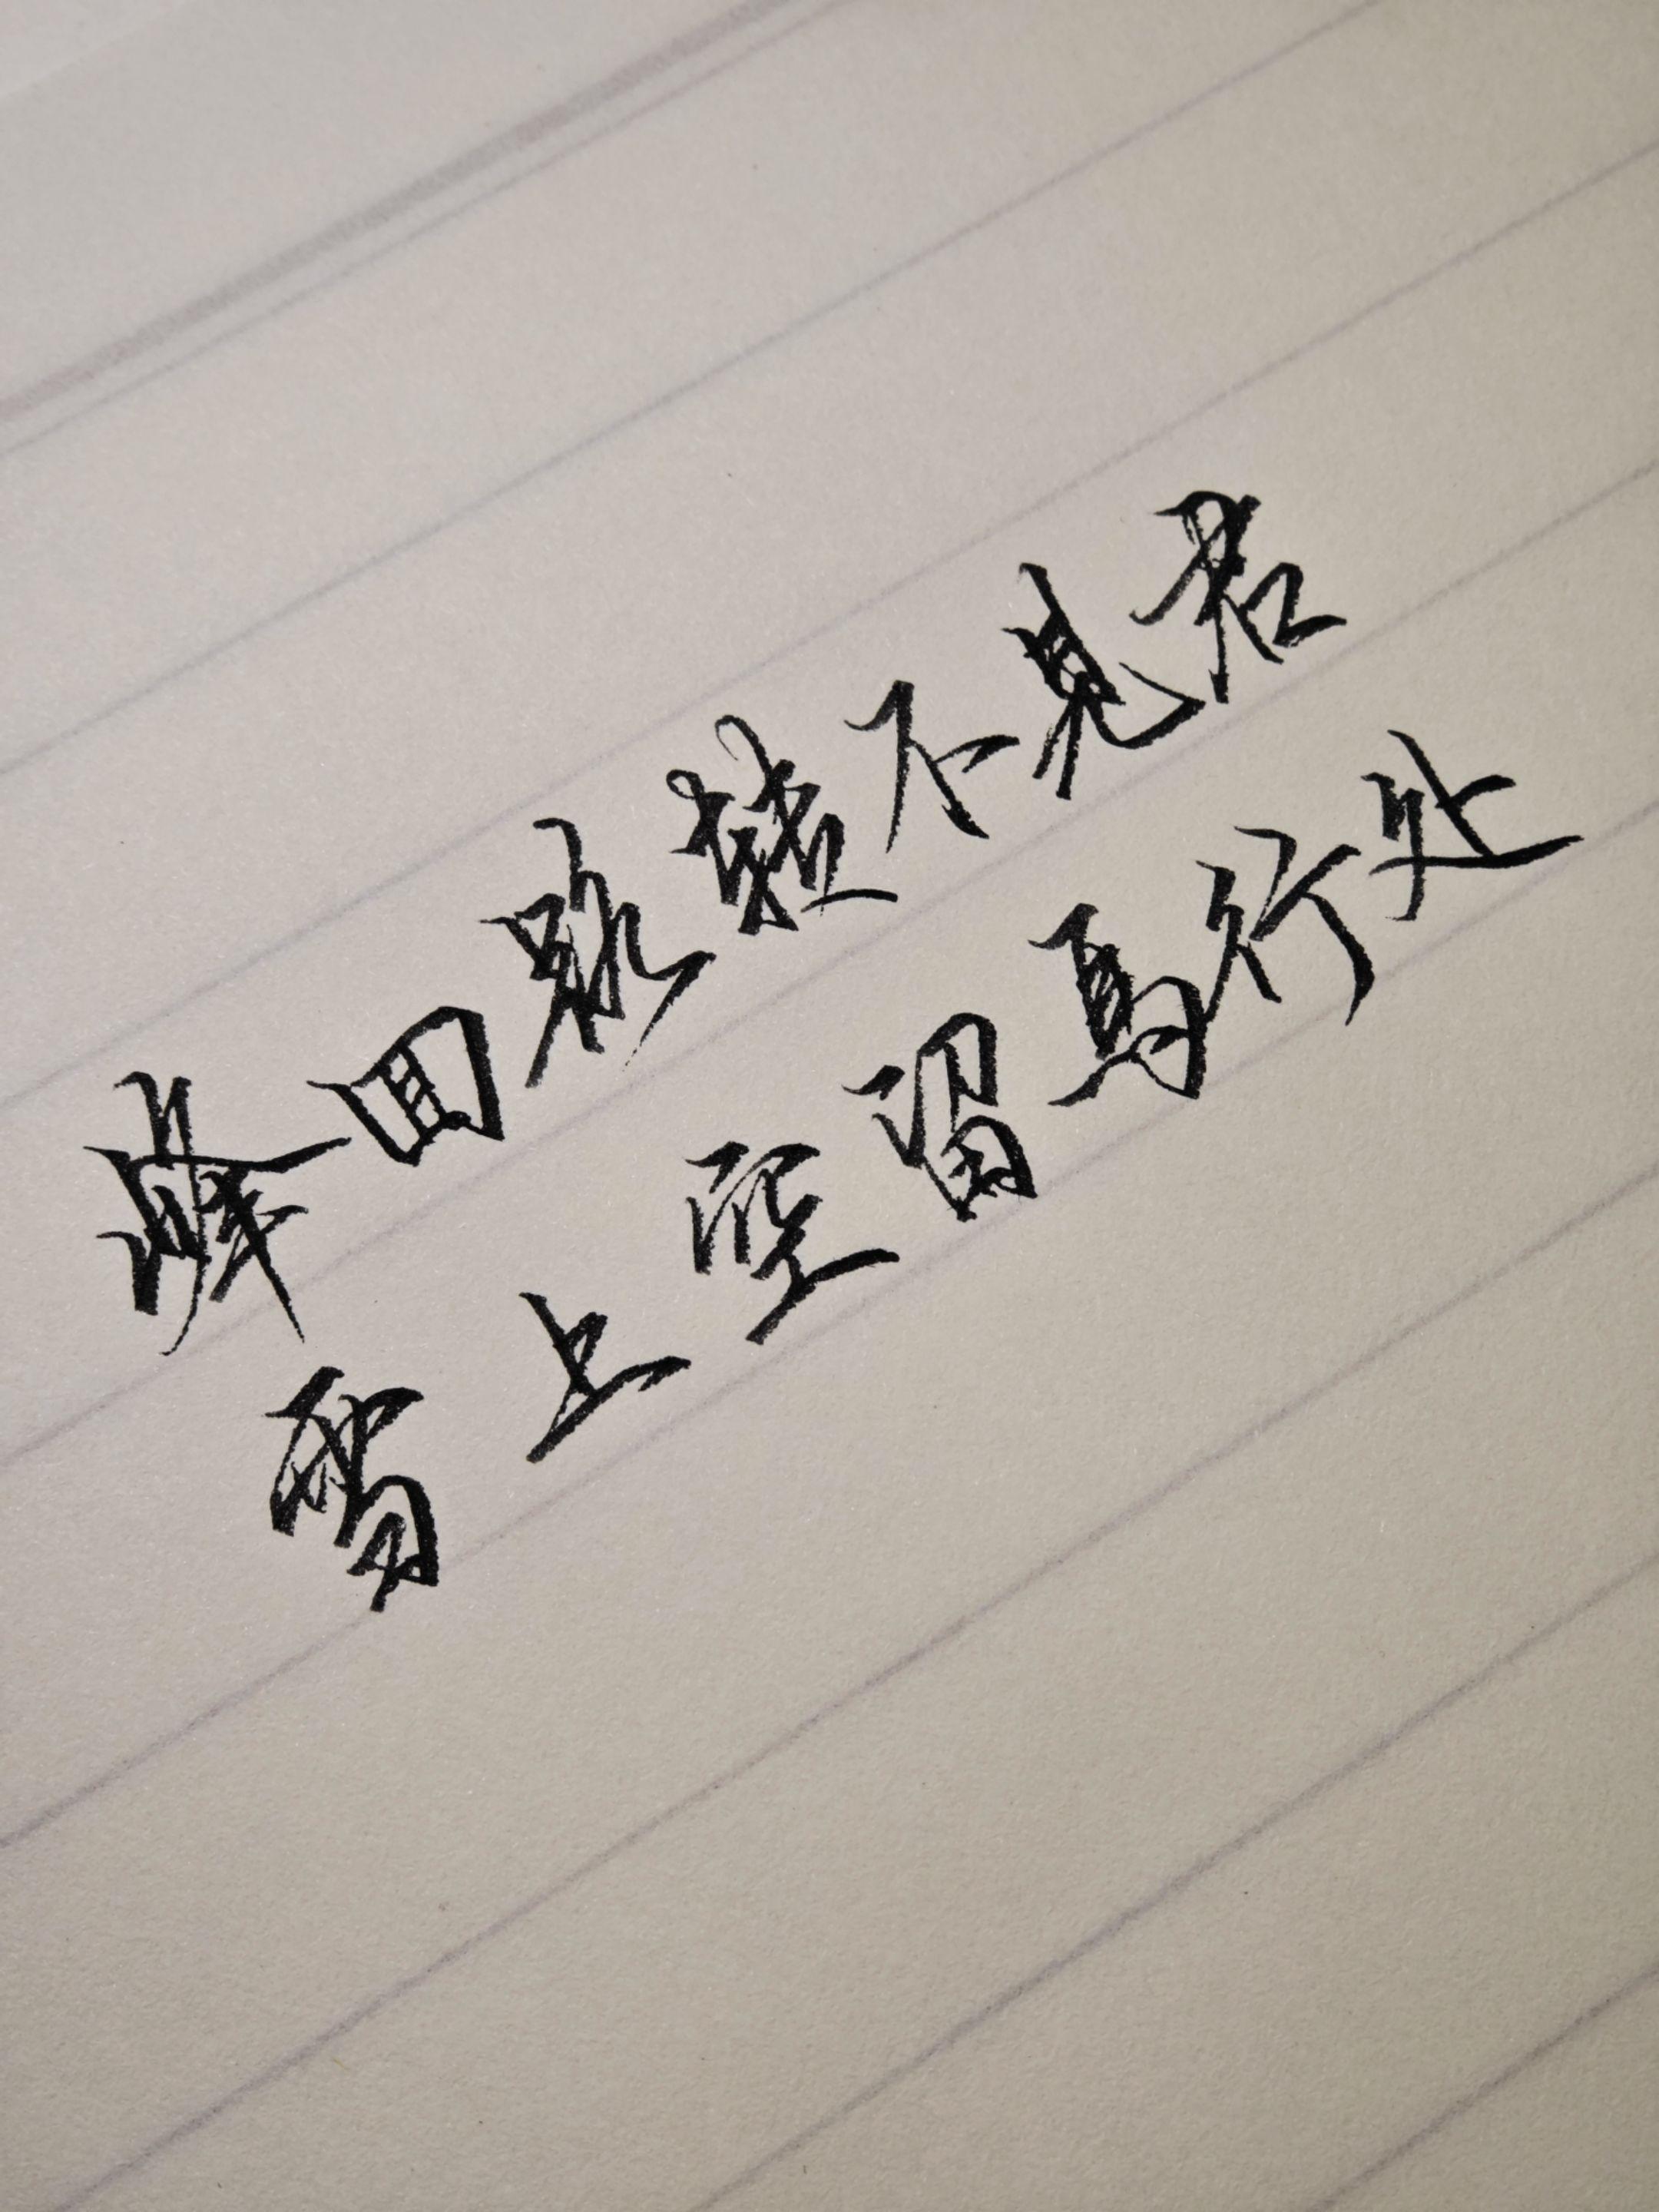 峰回路转不见君
雪上空留马行处